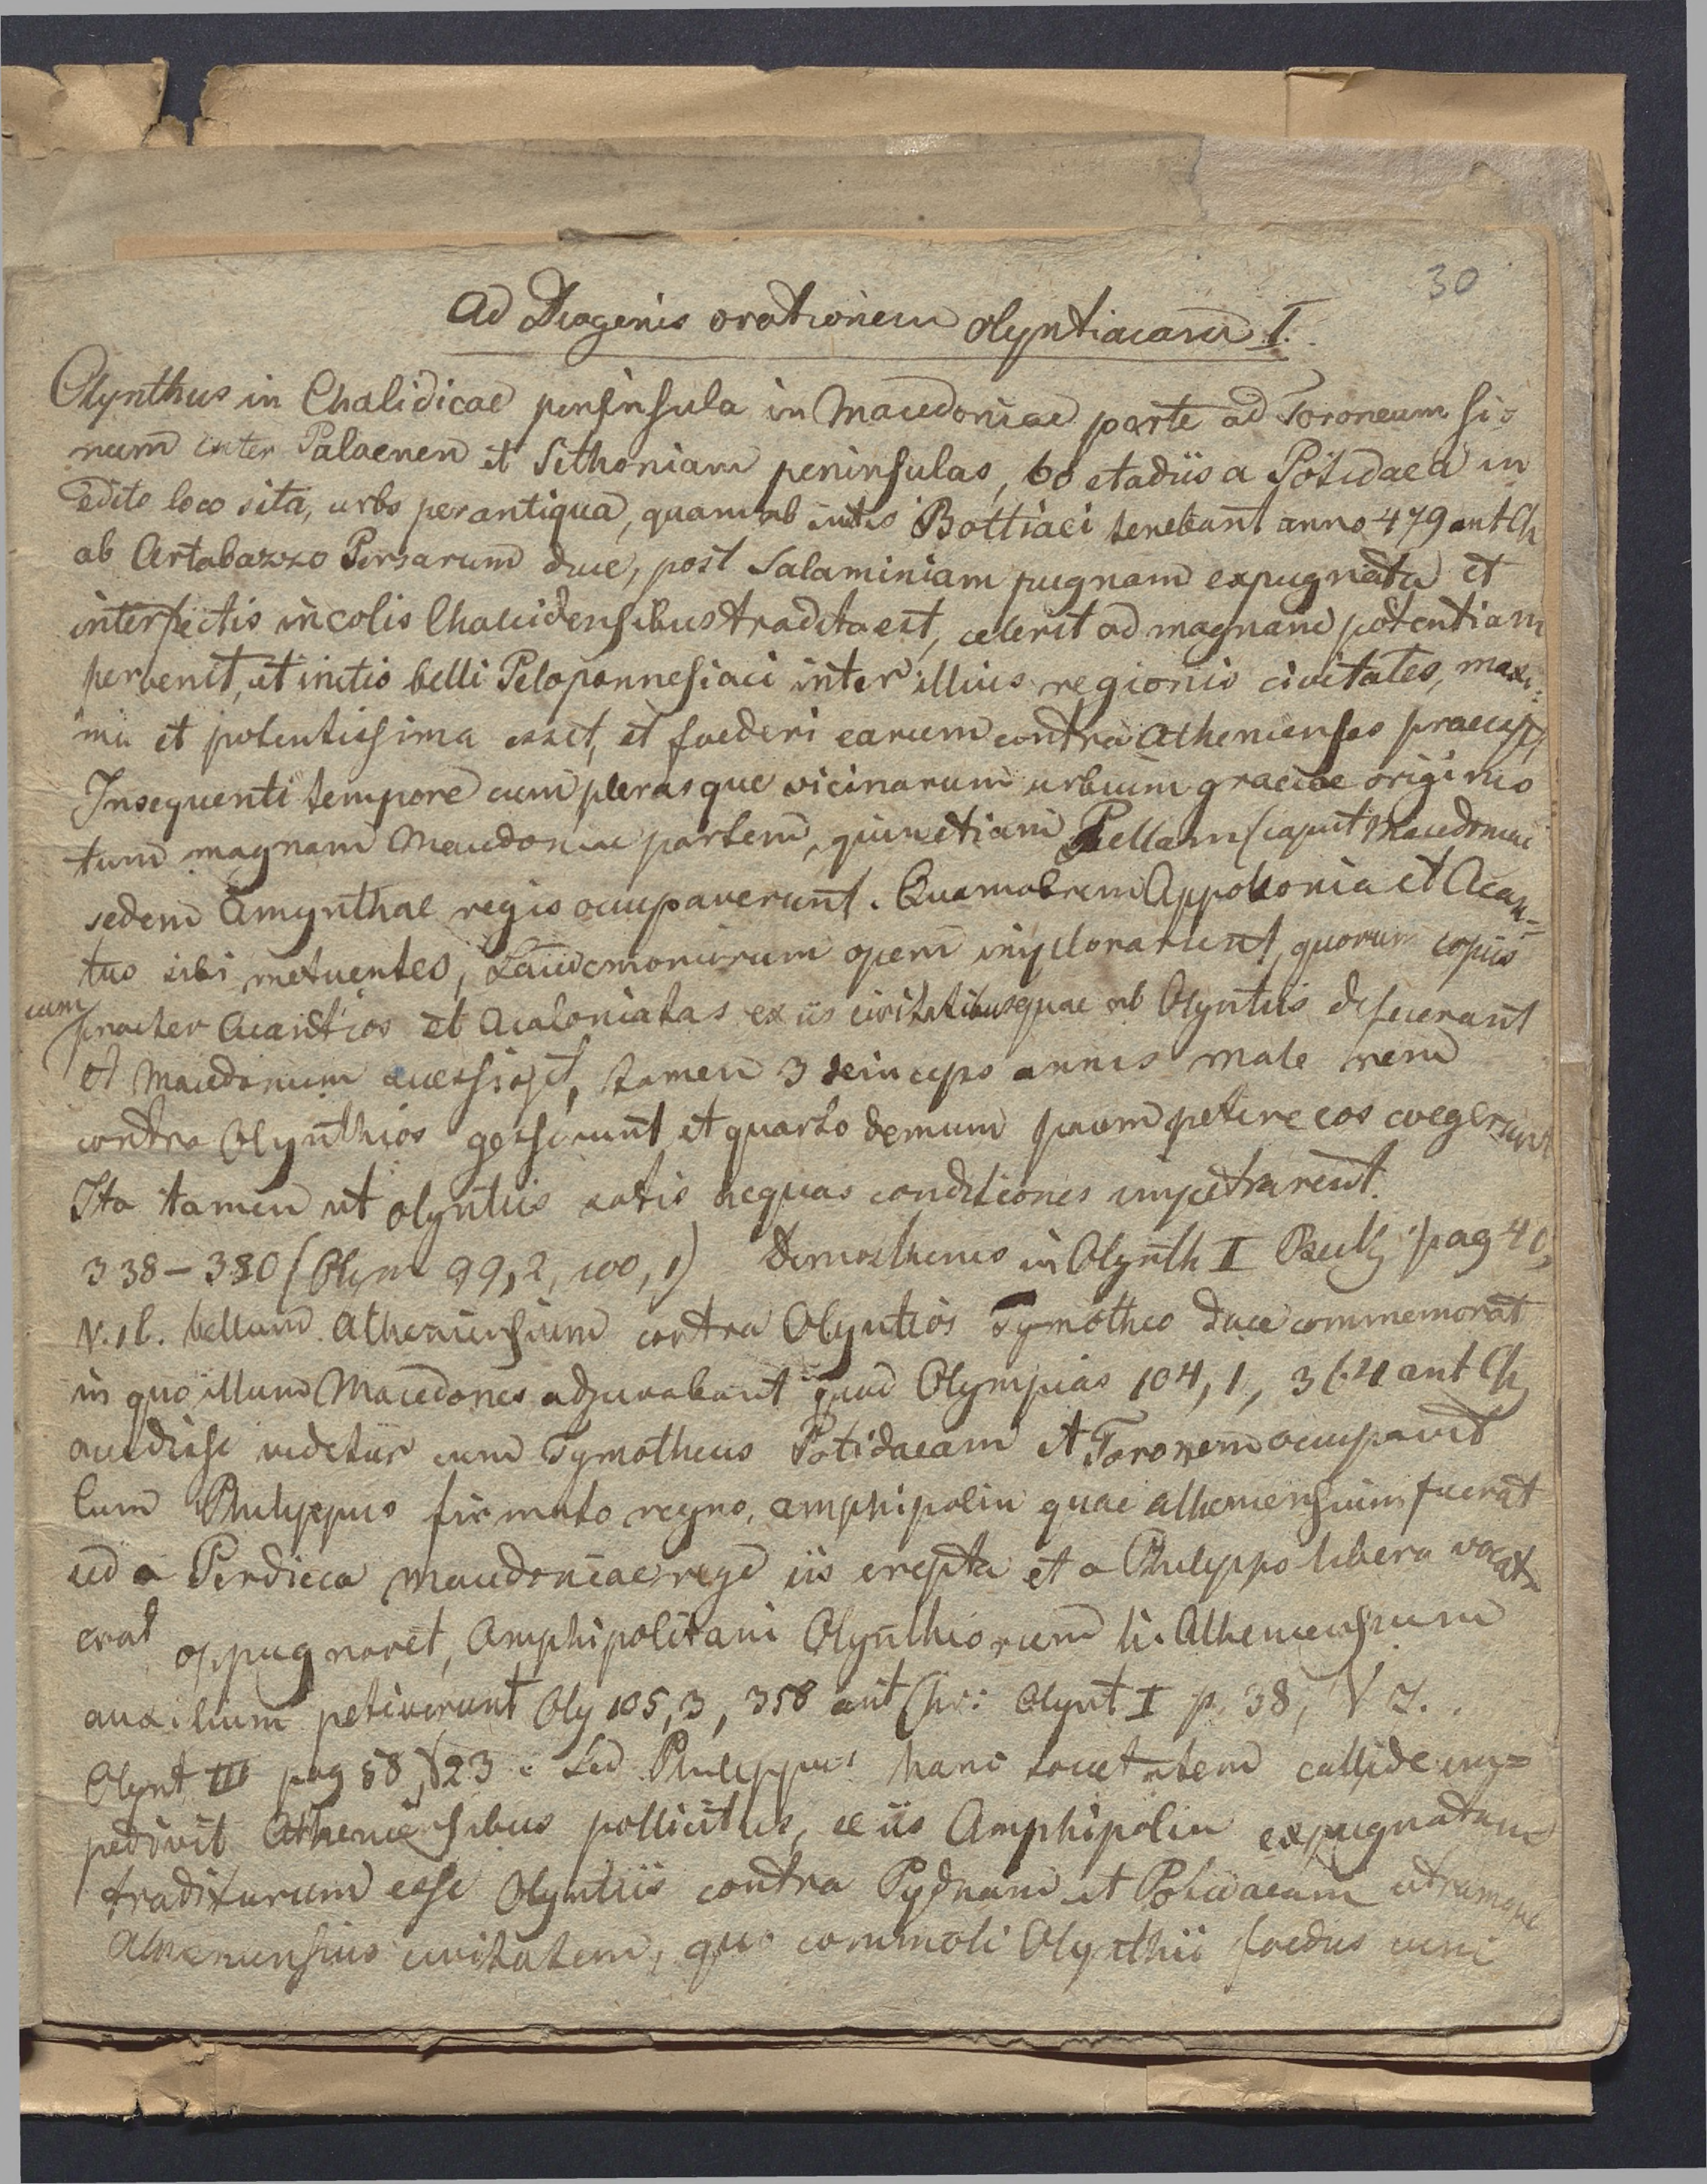 30
Ad Diogenis orationem olyntiacam I.
Olynthus in Chalidicae peninsula in Macedoniae parte ad Toroneum si=
num inter Palaenen et Sithoniam peninsulas, 60 stadiis a Potidaea in
edito loco sita, urbs perantiqua, quam ab initio Bottiaei tenebant anno 479 ant Ch
ab Artabazzo Persarum duce, post Salaminiam pugnam expugnata et
interfectis incolis Chalcidensibus tradita est, celerit ad magnam potentiam
pervenit, ut initio belli Peloponnesiaci inter illius regionis civitates, maxi=
ma et potentissima esset, et foederi earum contra Athenienses praeesset,
Insequenti tempore cum plerasque vicinarum urbium graecae originis
tum magnam Macedoniae partem, quin etiam Pellam (caput Macedoniae
sedem Amynthae regis occupaverunt. Quamobrem Appolonia et Acan=
tus sibi metuentes, Lacedmoniorum opem implorarunt, quorum copiis
cum praeter Acantios et Acaloniatas ex iis civitatibus quae ab Olyntiis defecerant
et Macedonum accessisset, tamen 3 deinceps annis male rem
contra Olynthios gesserunt et quarto demum pacem petere eos coegerunt
Ita tamen ut olyntiis satis aequas conditiones impetrarent.
338–380 (Olym 99,2, 100,1) Demosthenes in Olynth II pag 40,
V. 16. bellum Atheniensium contra Olyntios Tymotheo duce commemorat
in quo illum Macedones adjuvabant quod Olympias 104,1, 364 ant Ch
accidisse videtur cum Tymotheus Potidaeam et Toronem occupavit
Cum Philippus firmato regno, amphipolin quae atheniensium fuerat
sed a Perdicca macedoniae rege iis erepta et a Philippo libera vocata
erat oppugnaret, Amphipolitani Olynthiorum Atheniensium
auxilium petiverunt Oly 105,3, 358 ant Chr: Olynt I p. 38, V 7.
Olynt III pag 58, V23. Sed Philippus hanc societatem callide im=
pedivit Atheniensibus pollicitus, se iis Amphipolin expugnatam
traditurum esse Olyntiis contra Pydnam et Potidaeam utramque
Atheniensius civitatem, quo commoti Olynthii foedus cum